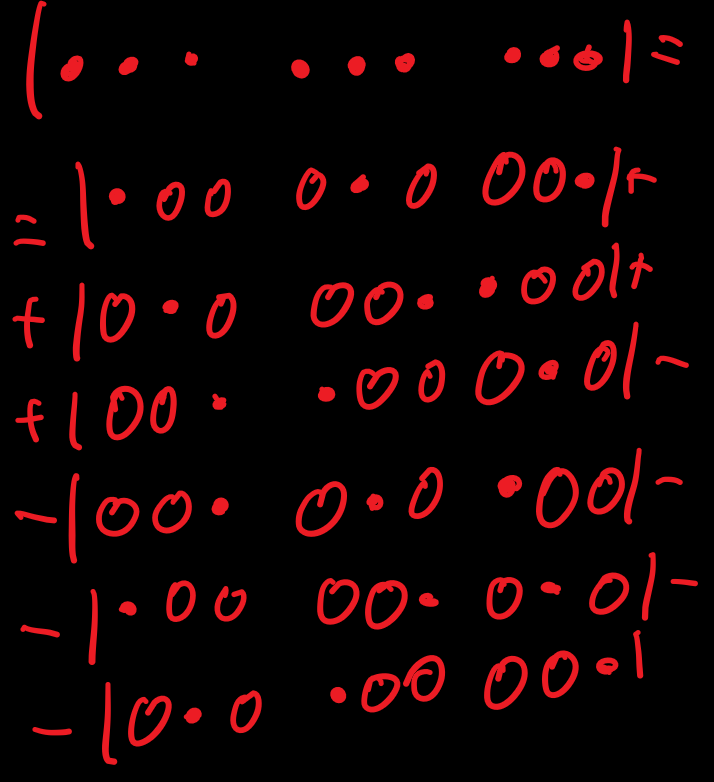 |• • • • • • • • •| =
= |• 0 0 0 • 0 0 0 •| +
+ |0 • 0 0 0 • • 0 0| +
+ |0 0 • • 0 0 0 • 0| -
- |0 0 • 0 • 0 • 0 0| -
- |• 0 0 0 0 • 0 • 0| -
- |0 • 0 • 0 0 0 0 •|